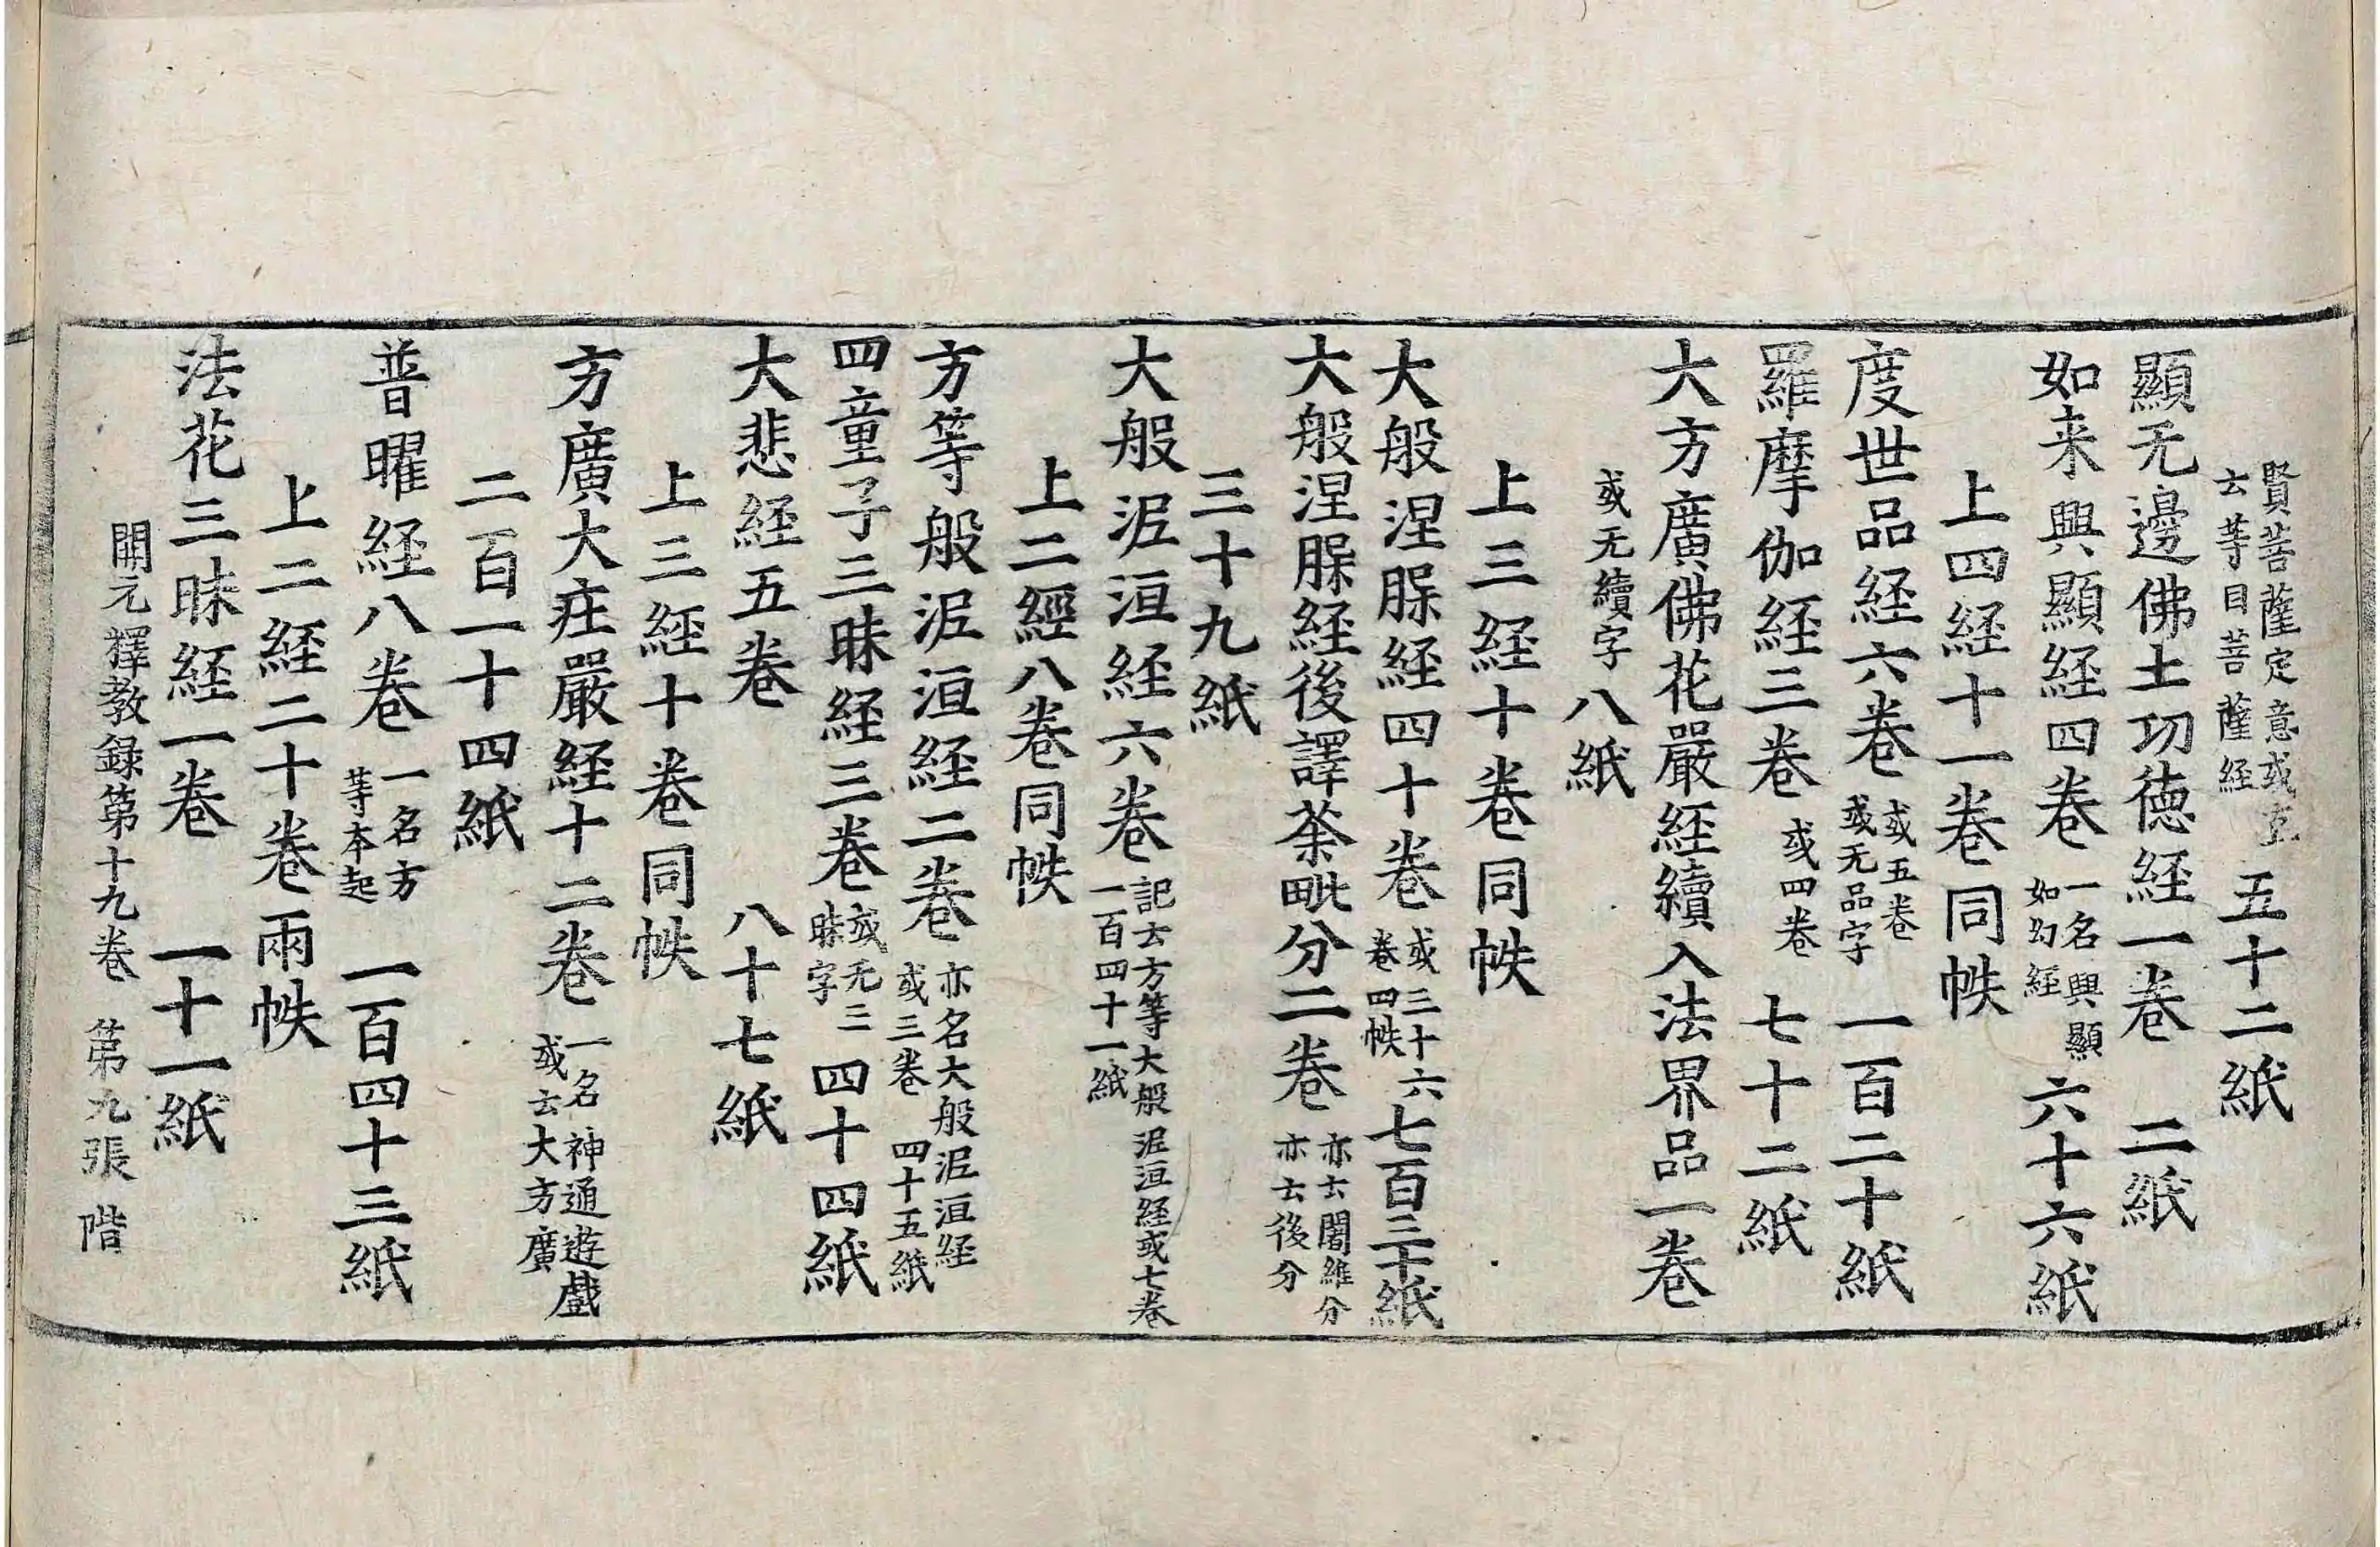 賢菩薩定意或直云等目菩薩経 五十二紙
顯无邊佛土功徳経一巻 二紙
如来興顯経四巻 一名興顯如幻経 六十六紙
上四経十一巻同帙
度世品経六巻 或五巻或无品字 一百二十紙
羅摩伽経三巻 或四巻 七十二紙
大方廣佛花嚴経續入法界品一巻
或无續字 八紙
上三経十巻同帙
大般涅脲経四十巻 或三十六巻四帙 七百三十紙
大般涅脲経後譯荼毗分二巻 亦云闍維分亦云後分
三十九紙
大般泥洹経六巻 記云方等大般泥洹経或七巻一百四十一紙
上二經八巻同帙
方等般泥洹経二巻 亦名大般泥洹経或三巻 四十五紙
四童子三昧経三巻 或无三昧字 四十四紙
大悲経五巻 八十七紙
上三経十巻同帙
方廣大荘嚴経十二巻 一名神通遊戲或云大方廣
二百一十四紙
普曜経八巻 一名方等本起 一百四十三紙
上二経二十巻兩帙
法花三昧経一巻 一十一紙
開元釋教録第十九巻 第九張 階